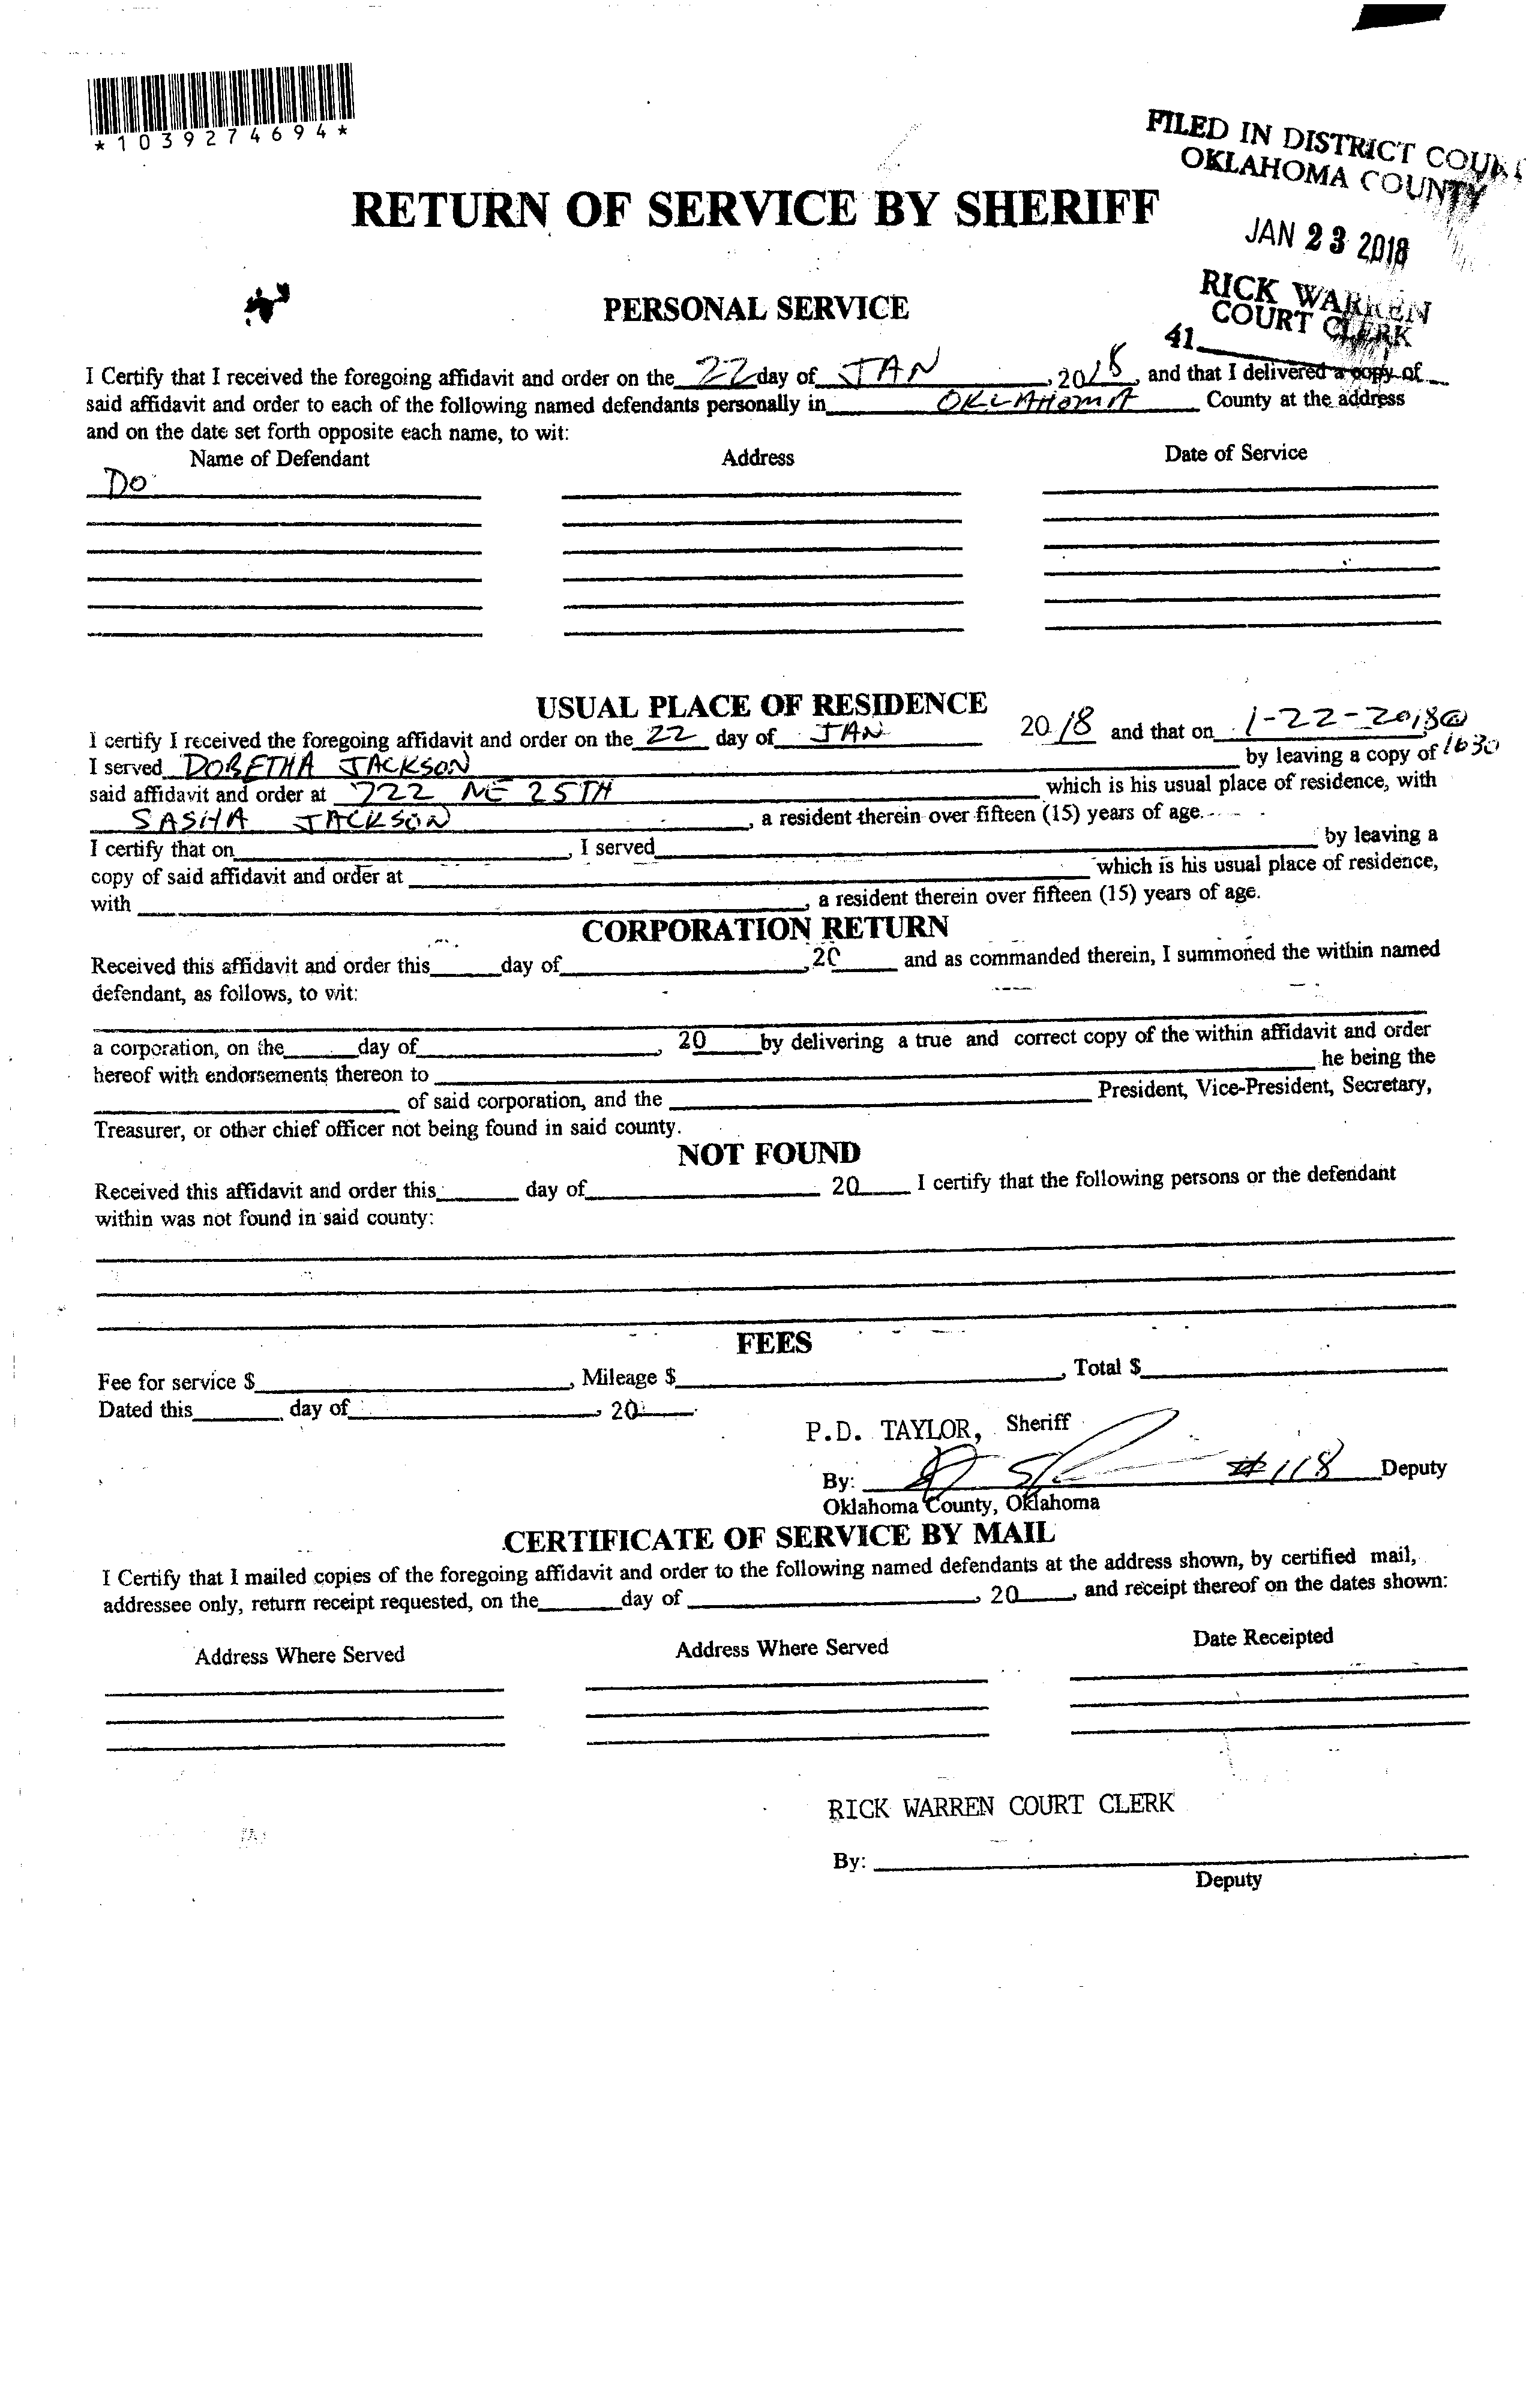 *1039274694*
FILED IN DISTRICT COURT
OKLAHOMA COUNTY
JAN 23 2018
RICK WARREN
COURT CLERK
41
RETURN OF SERVICE BY SHERIFF
PERSONAL SERVICE
I Certify that I received the foregoing affidavit and order on the 22 day of JAN, 2018, and that I delivered a copy of
said affidavit and order to each of the following named defendants personally in OKLAHOMA County at the address
and on the date set forth opposite each name, to wit:
Name of Defendant Address Date of Service
DO
USUAL PLACE OF RESIDENCE
I certify I received the foregoing affidavit and order on the 22 day of JAN 2018 and that on 1-22-2018@
1630
I served DORETHA JACKSON by leaving a copy of
said affidavit and order at 722 NE 25TH which is his usual place of residence, with
SASHA JACKSON, a resident therein over fifteen (15) years of age.
I certify that on , I served by leaving a
copy of said affidavit and order at which is his usual place of residence,
with , a resident therein over fifteen (15) years of age.
CORPORATION RETURN
Received this affidavit and order this day of , 20 and as commanded therein, I summoned the within named
defendant, as follows, to wit:
a corporation, on the day of , 20 by delivering a true and correct copy of the within affidavit and order
hereof with endorsements thereon to he being the
of said corporation, and the President, Vice-President, Secretary,
Treasurer, or other chief officer not being found in said county.
NOT FOUND
Received this affidavit and order this day of 20 I certify that the following persons or the defendant
within was not found in said county:
FEES
Fee for service $ , Mileage $ , Total $
Dated this day of , 20
P.D. TAYLOR, Sheriff
By: #118 Deputy
Oklahoma County, Oklahoma
CERTIFICATE OF SERVICE BY MAIL
I Certify that I mailed copies of the foregoing affidavit and order to the following named defendants at the address shown, by certified mail,
addressee only, return receipt requested, on the day of , 20 , and receipt thereof on the dates shown:
Address Where Served Address Where Served Date Receipted
RICK WARREN COURT CLERK
By:
Deputy